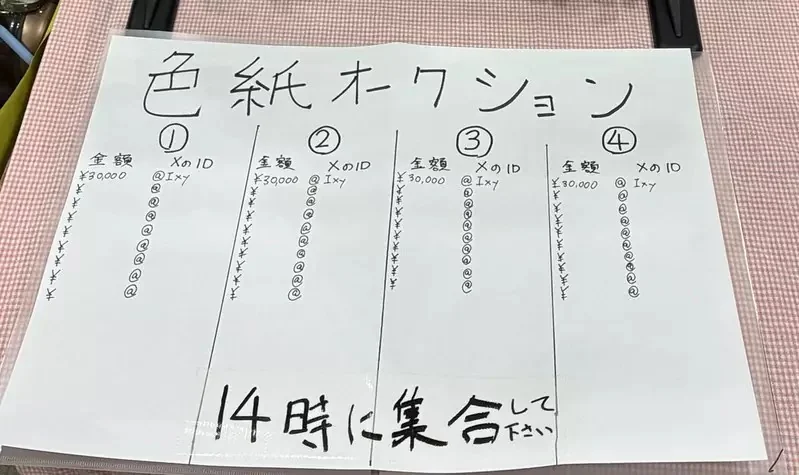 色紙オークション
① ② ③ ④
金額 XのID 金額 XのID 金額 XのID 金額 XのID
¥30,000 @Ixy ¥30,000 @Ixy ¥30,000 @Ixy ¥30,000 @Ixy
¥ @ ¥ @ ¥ @ ¥ @
¥ @ ¥ @ ¥ @ ¥ @
¥ @ ¥ @ ¥ @ ¥ @
¥ @ ¥ @ ¥ @ ¥ @
¥ @ ¥ @ ¥ @ ¥ @
¥ @ ¥ @ ¥ @ ¥ @
¥ @ ¥ @ ¥ @ ¥ @
¥ @ ¥ @ ¥ @ ¥ @
14時に集合して下さい